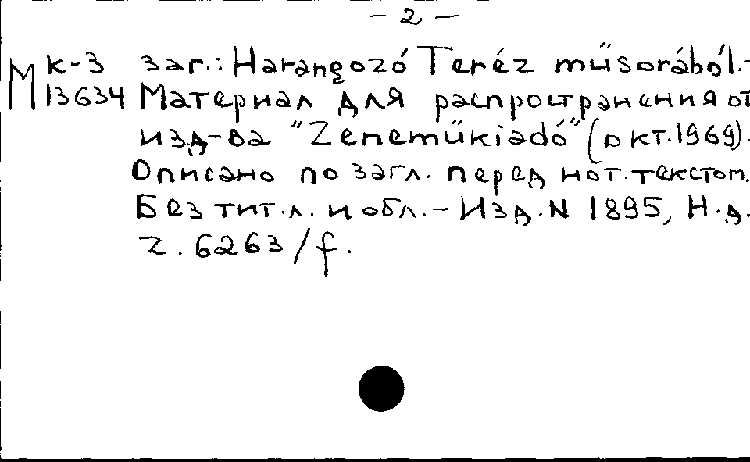 – 2 –
М к-3 заг.: Harangozó Teréz műsorából.-
13634 Материал для распространения от
изд-ва "Zeneműkiadó" (окт. 1969).
Описано по загл. перед нот. текстом.
Без тит. л. и обл. – Изд. N 1895, Н.д.
Z. 6263/f.